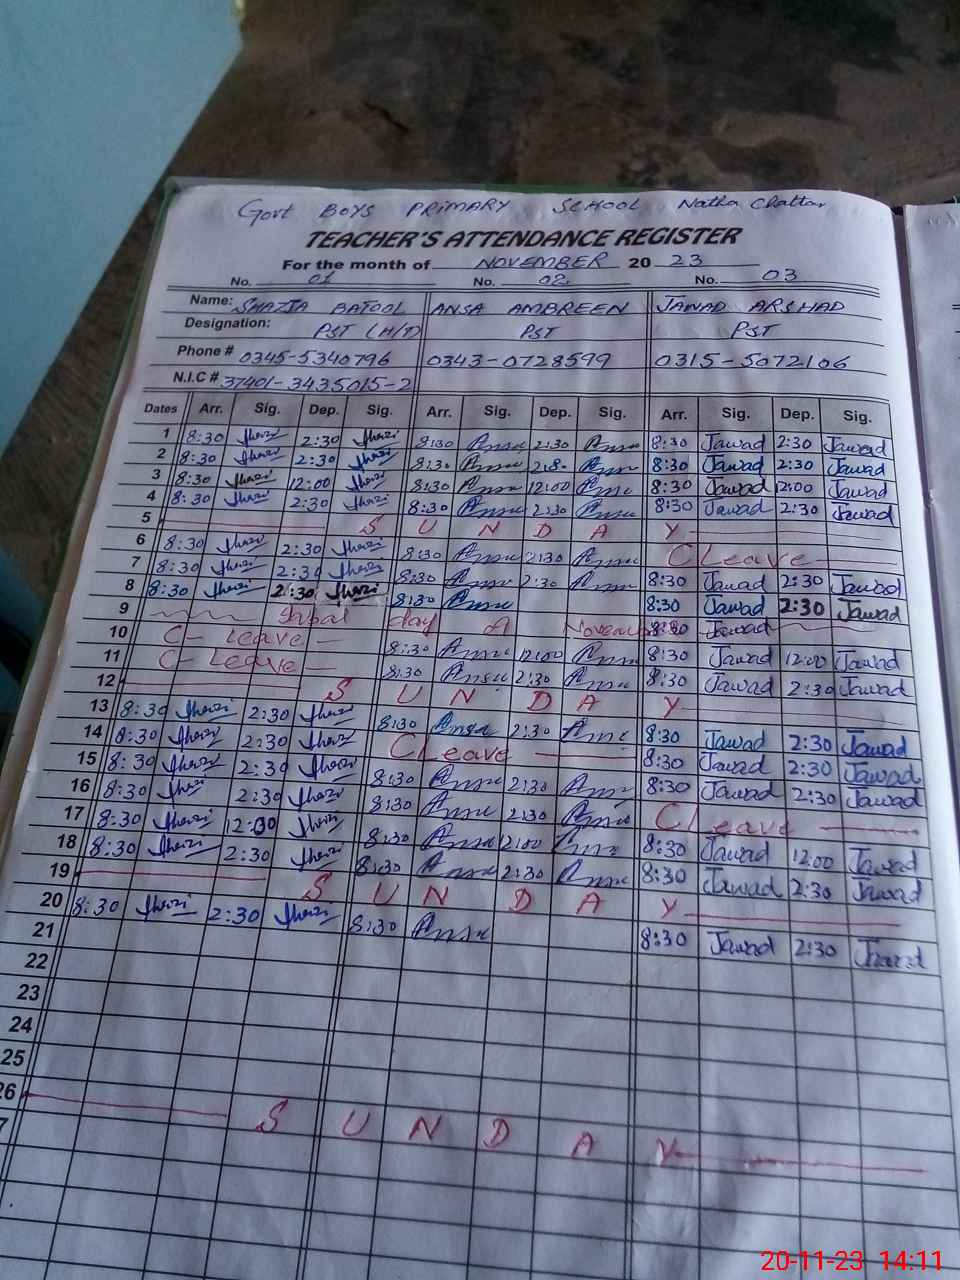 Govt BOYS PRIMARY SCHOOL Natha Chattar
TEACHER'S ATTENDANCE REGISTER
For the month of NOVEMBER 20 23
No. 01 No. 02 No. 03
Name: SHAZIA BATOOL ANSA AMBREEN JAWAD ARSHAD
Designation: PST (H/T) PST PST
Phone # 0345-5340796 0343-0728599 0315-5072106
N.I.C # 37401-3435015-2
Dates Arr. Sig. Dep. Sig. Arr. Sig. Dep. Sig. Arr. Sig. Dep. Sig.
1 8:30 Shazi 2:30 Shazi 8:30 Ansa 2:30 Ansa 8:30 Jawad 2:30 Jawad
2 8:30 Shazi 2:30 Shazi 8:30 Ansa 2:30 Ansa 8:30 Jawad 2:30 Jawad
3 8:30 Shazi 12:00 Shazi 8:30 Ansa 12:00 Ansa 8:30 Jawad 12:00 Jawad
4 8:30 Shazi 2:30 Shazi 8:30 Ansa 2:30 Ansa 8:30 Jawad 2:30 Jawad
5 S U N D A Y
6 8:30 Shazi 2:30 Shazi 8:30 Ansa 2:30 Ansa C Leave
7 8:30 Shazi 2:30 Shazi 8:30 Ansa 2:30 Ansa 8:30 Jawad 2:30 Jawad
8 8:30 Shazi 2:30 Shazi 8:30 Ansa 8:30 Jawad 2:30 Jawad
9 Iqbal day 9 November 8:30 Jawad
10 C- Leave 8:30 Ansa 12:00 Ansa 8:30 Jawad 12:00 Jawad
11 C- Leave 8:30 Ansa 2:30 Ansa 8:30 Jawad 2:30 Jawad
12 S U N D A Y
13 8:30 Shazi 2:30 Shazi 8:30 Ansa 2:30 Ansa 8:30 Jawad 2:30 Jawad
14 8:30 Shazi 2:30 Shazi C Leave 8:30 Jawad 2:30 Jawad
15 8:30 Shazi 2:30 Shazi 8:30 Ansa 2:30 Ansa 8:30 Jawad 2:30 Jawad
16 8:30 Shazi 2:30 Shazi 8:30 Ansa 2:30 Ansa C Leave
17 8:30 Shazi 12:00 Shazi 8:30 Ansa 12:00 Ansa 8:30 Jawad 12:00 Jawad
18 8:30 Shazi 2:30 Shazi 8:30 Ansa 2:30 Ansa 8:30 Jawad 2:30 Jawad
19 S U N D A Y
20 8:30 Shazi 2:30 Shazi 8:30 Ansa 8:30 Jawad 2:30 Jawad
21
22
23
24
25
26 S U N D A Y
20-11-23 14:11